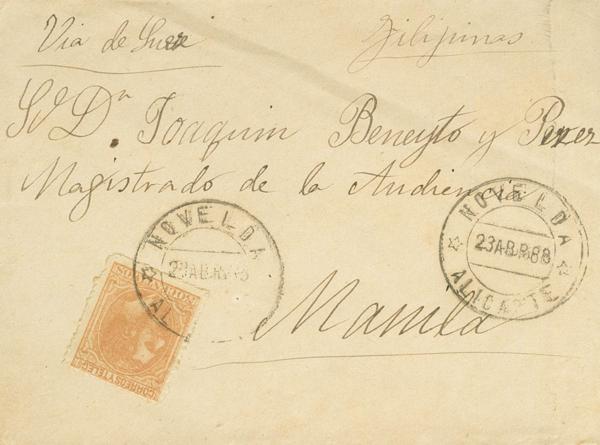 Via de Suez
Filipinas
Sr Dn Joaquin Beneyto y Perez
Magistrado de la Audiencia
Manila
NOVELDA
23 ABR 88
ALICANTE
NOVELDA
23 ABR 88
AL
CORREOS Y TELEG